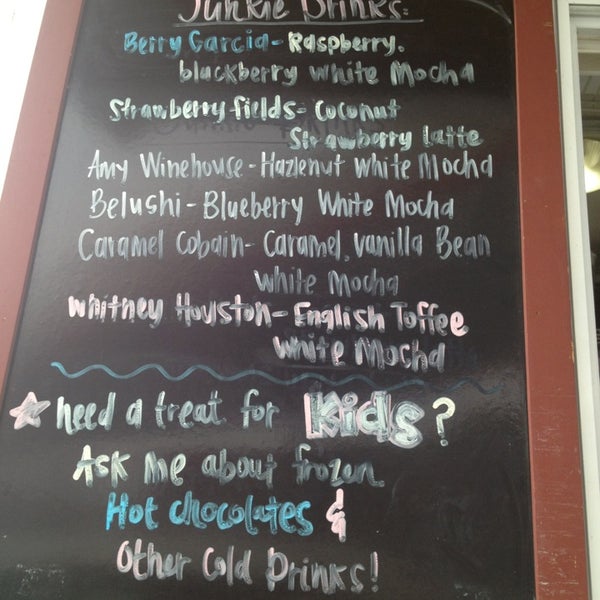 Junkie Drinks:
Berry Garcia - Raspberry.
blackberry white Mocha
Strawberry fields - Coconut
Strawberry latte
Amy Winehouse - Hazlenut White Mocha
Belushi - Blueberry White Mocha
Caramel Cobain - Caramel, vanilla Bean
White Mocha
Whitney Houston - English Toffee
White Mocha
need a treat for Kids?
Ask me about frozen
Hot chocolates &
Other Cold Drinks!